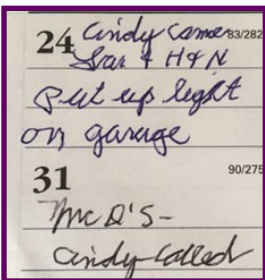 24 Cindy came 83/282
& H & N
Put up light
on garage
31 90/275
McD'S-
Cindy called